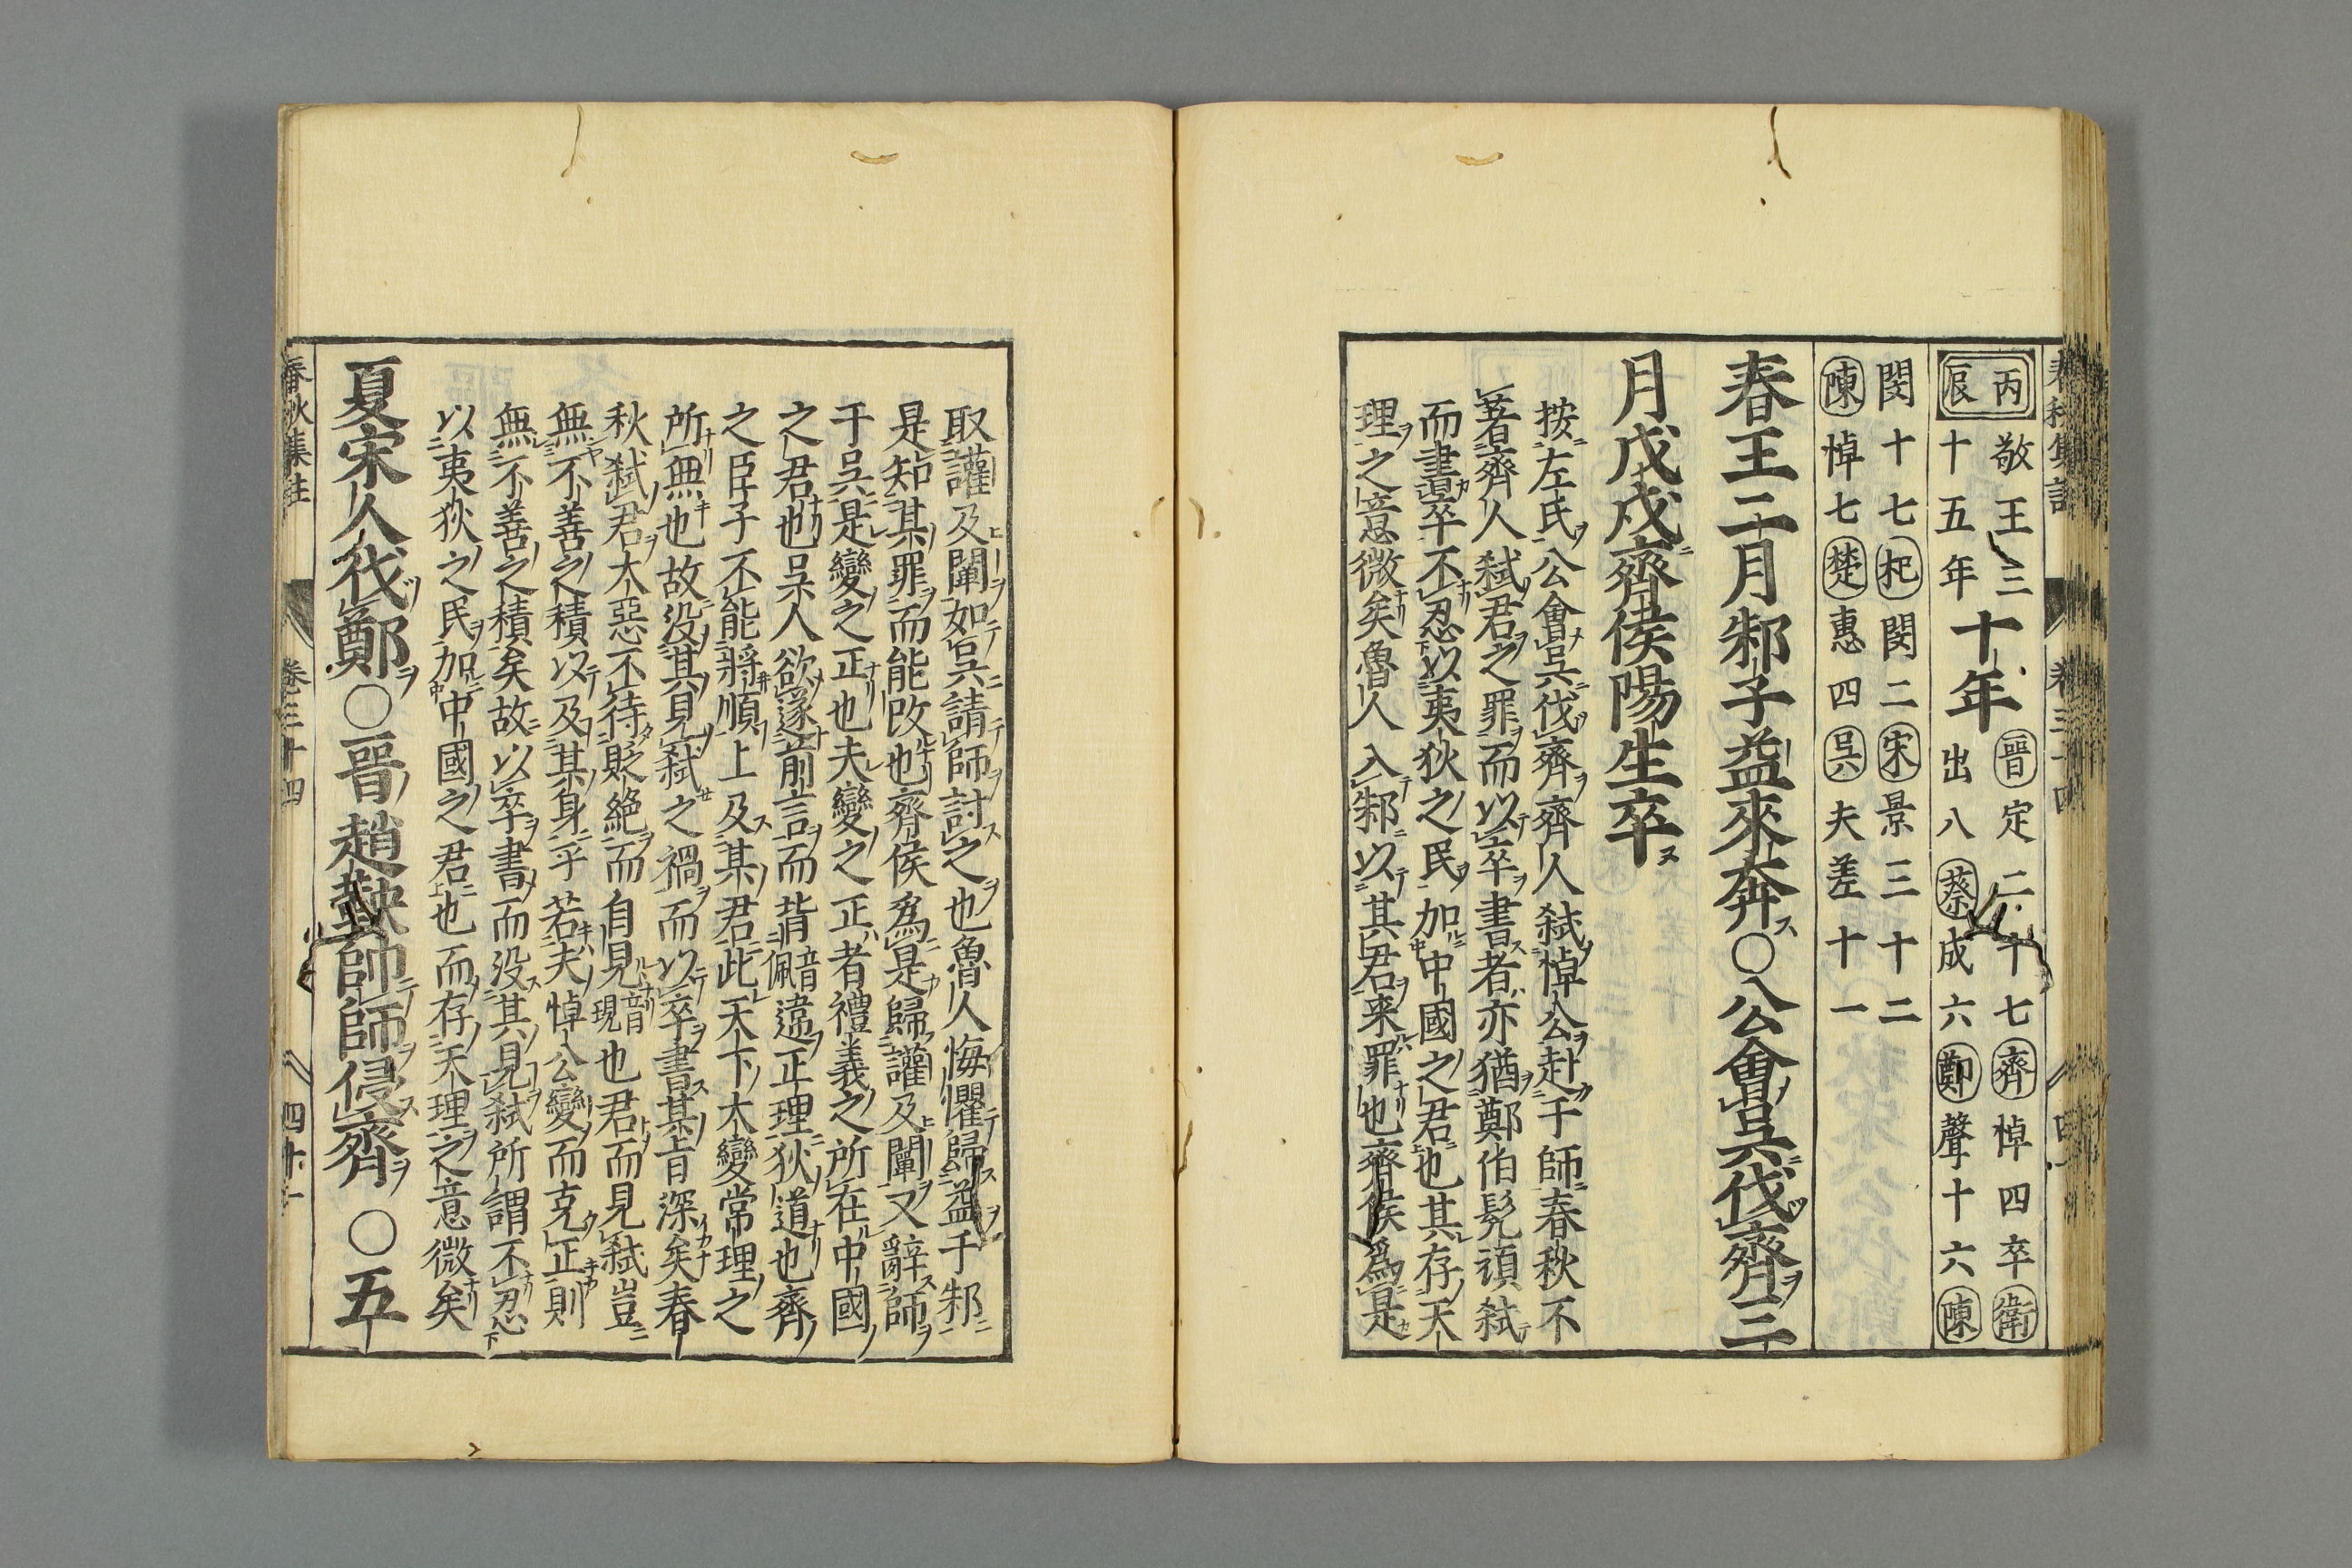 丙辰
敬王三十五年
十年
晉定二十七齊悼四卒衛
出八蔡成六鄭聲十六陳
閔十七杞閔二宋景三十二
陳悼七楚惠四吳夫差十一
春王二月邾子益來奔○公會吳伐齊三
月戊戌齊侯陽生卒
按左氏公會吳伐齊齊人弑悼公赴于師春秋不
著齊人弑君之罪而以卒書者亦猶鄭伯髡頑弑
而書卒不忍以夷狄之民加中國之君也其存天
理之意微矣魯人入邾以其君來罪也齊侯爲是
取讙及闡如吳請師討之也魯人悔懼歸益于邾
是知其罪而能改也齊侯爲是歸讙及闡又辭師
于吳是變之正也夫變之正者禮義之所在中國
之君也吳人欲遂前言而背音佩違正理狄道也齊
之臣子不能將順上及其君此天下大變常理之
所無也故没其見弑之禍而以卒書其旨深矣春
秋弑君大惡不待貶絕而自見音現也君而見弑豈
無不善之積以及其身乎若夫悼公變而克正則
無不善之積矣故以卒書而没其見弑所謂不忍
以夷狄之民加中國之君也而存天理之意微矣
夏宋人伐鄭○晉趙鞅帥師侵齊○五
春秋集註
卷三十四
四十一